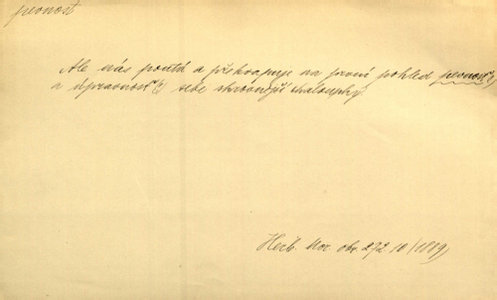 pevnost
Ale nás poutá a překvapuje na první pohled pevnost
a úpravnost sebe skrovnější chaloupky.
Herb. Mor. obr. 272 10 (1889)